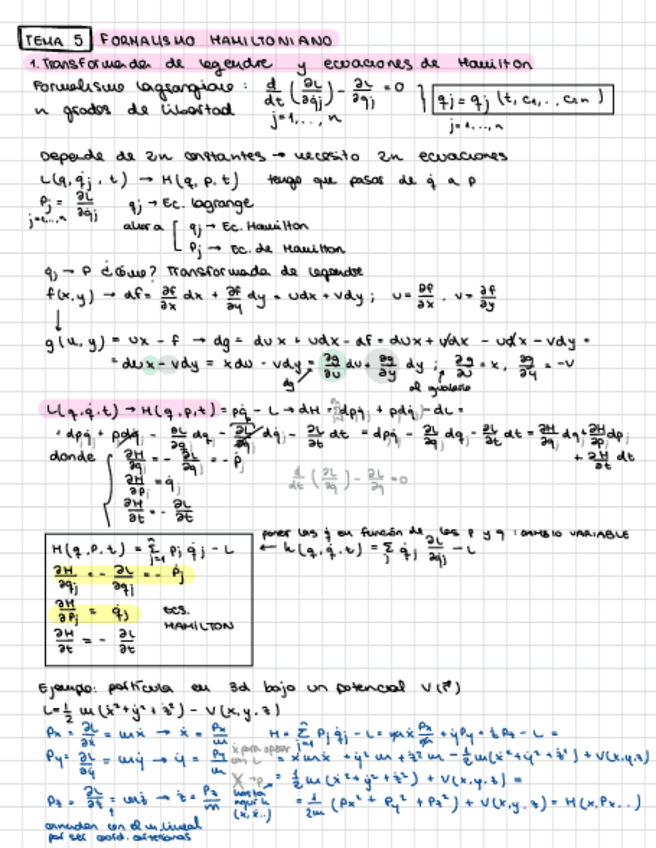 TEMA 5 FORMALISMO HAMILTONIANO
1. Transformada de legendre y ecuaciones de Hamilton
Formalismo lagrangiano : d/dt (∂L/∂q̇j) - ∂L/∂qj = 0 } qj = qj (t, c1, ..., c2n)
n grados de libertad j=1,..., n j=1,..., n
Depende de 2n constantes → necesito 2n ecuaciones
L(q, q̇j, t) → H(q, p, t) tengo que pasar de q̇ a p
Pj = ∂L/∂q̇j qj → Ec. lagrange
j=1,...,n
ahora [ qj → Ec. Hamilton
Pj → Ec. de Hamilton
q̇j → P ¿cómo? Transformada de legendre
f(x,y) → df = ∂f/∂x dx + ∂f/∂y dy = udx + vdy ; u = ∂f/∂x , v = ∂f/∂y
↓
g(u,y) = ux - f → dg = dux + udx - df = dux + udx - udx - vdy =
= dux - vdy = xdu - vdy = ∂g/∂u du + ∂g/∂y dy ; ∂g/∂u = x, ∂g/∂y = -v
dg al igualarlo
L(q,q̇,t) → H(q,p,t) = pq̇ - L → dH = dpq̇ + pdq̇ - dL =
= dpq̇ + pdq̇ - ∂L/∂q dq - ∂L/∂q̇ dq̇ - ∂L/∂t dt = dpq̇ - ∂L/∂q dq - ∂L/∂t dt = ∂H/∂q dq + ∂H/∂p dp
+ ∂H/∂t dt
donde { ∂H/∂qj = - ∂L/∂qj = - ṗj
∂H/∂pj = q̇j d/dt (∂L/∂q̇) - ∂L/∂q = 0
∂H/∂t = - ∂L/∂t
poner las q̇ en función de las p y q : CAMBIO VARIABLE
H(q,p,t) = Σ j=1 n Pj q̇j - L ← h(q,q̇,t) = Σj q̇j ∂L/∂q̇j - L
∂H/∂qj = - ∂L/∂qj = - Ṗj
∂H/∂Pj = q̇j ECS.
HAMILTON
∂H/∂t = - ∂L/∂t
Ejemplo: partícula en 3d bajo un potencial V(r⃗)
L = 1/2 m(ẋ²+ẏ²+ż²) - V(x,y,z)
Px = ∂L/∂ẋ = mẋ → ẋ = Px/m H = Σ j=1 n Pj q̇j - L = ẋPx + ẏPy + żPz - L =
Py = ∂L/∂ẏ = mẏ → ẏ = Py/m = ẋmẋ + ẏ²m + ż²m - 1/2 m(ẋ²+ẏ²+ż²) + V(x,y,z)
= 1/2 m(ẋ²+ẏ²+ż²) + V(x,y,z) =
Pz = ∂L/∂ż = mż → ż = Pz/m hasta aquí h (x,ẋ..) = 1/2m (Px² + Py² + Pz²) + V(x,y,z) = H(x,Px..)
coinciden con el m. lineal
por ser coord. cartesianas